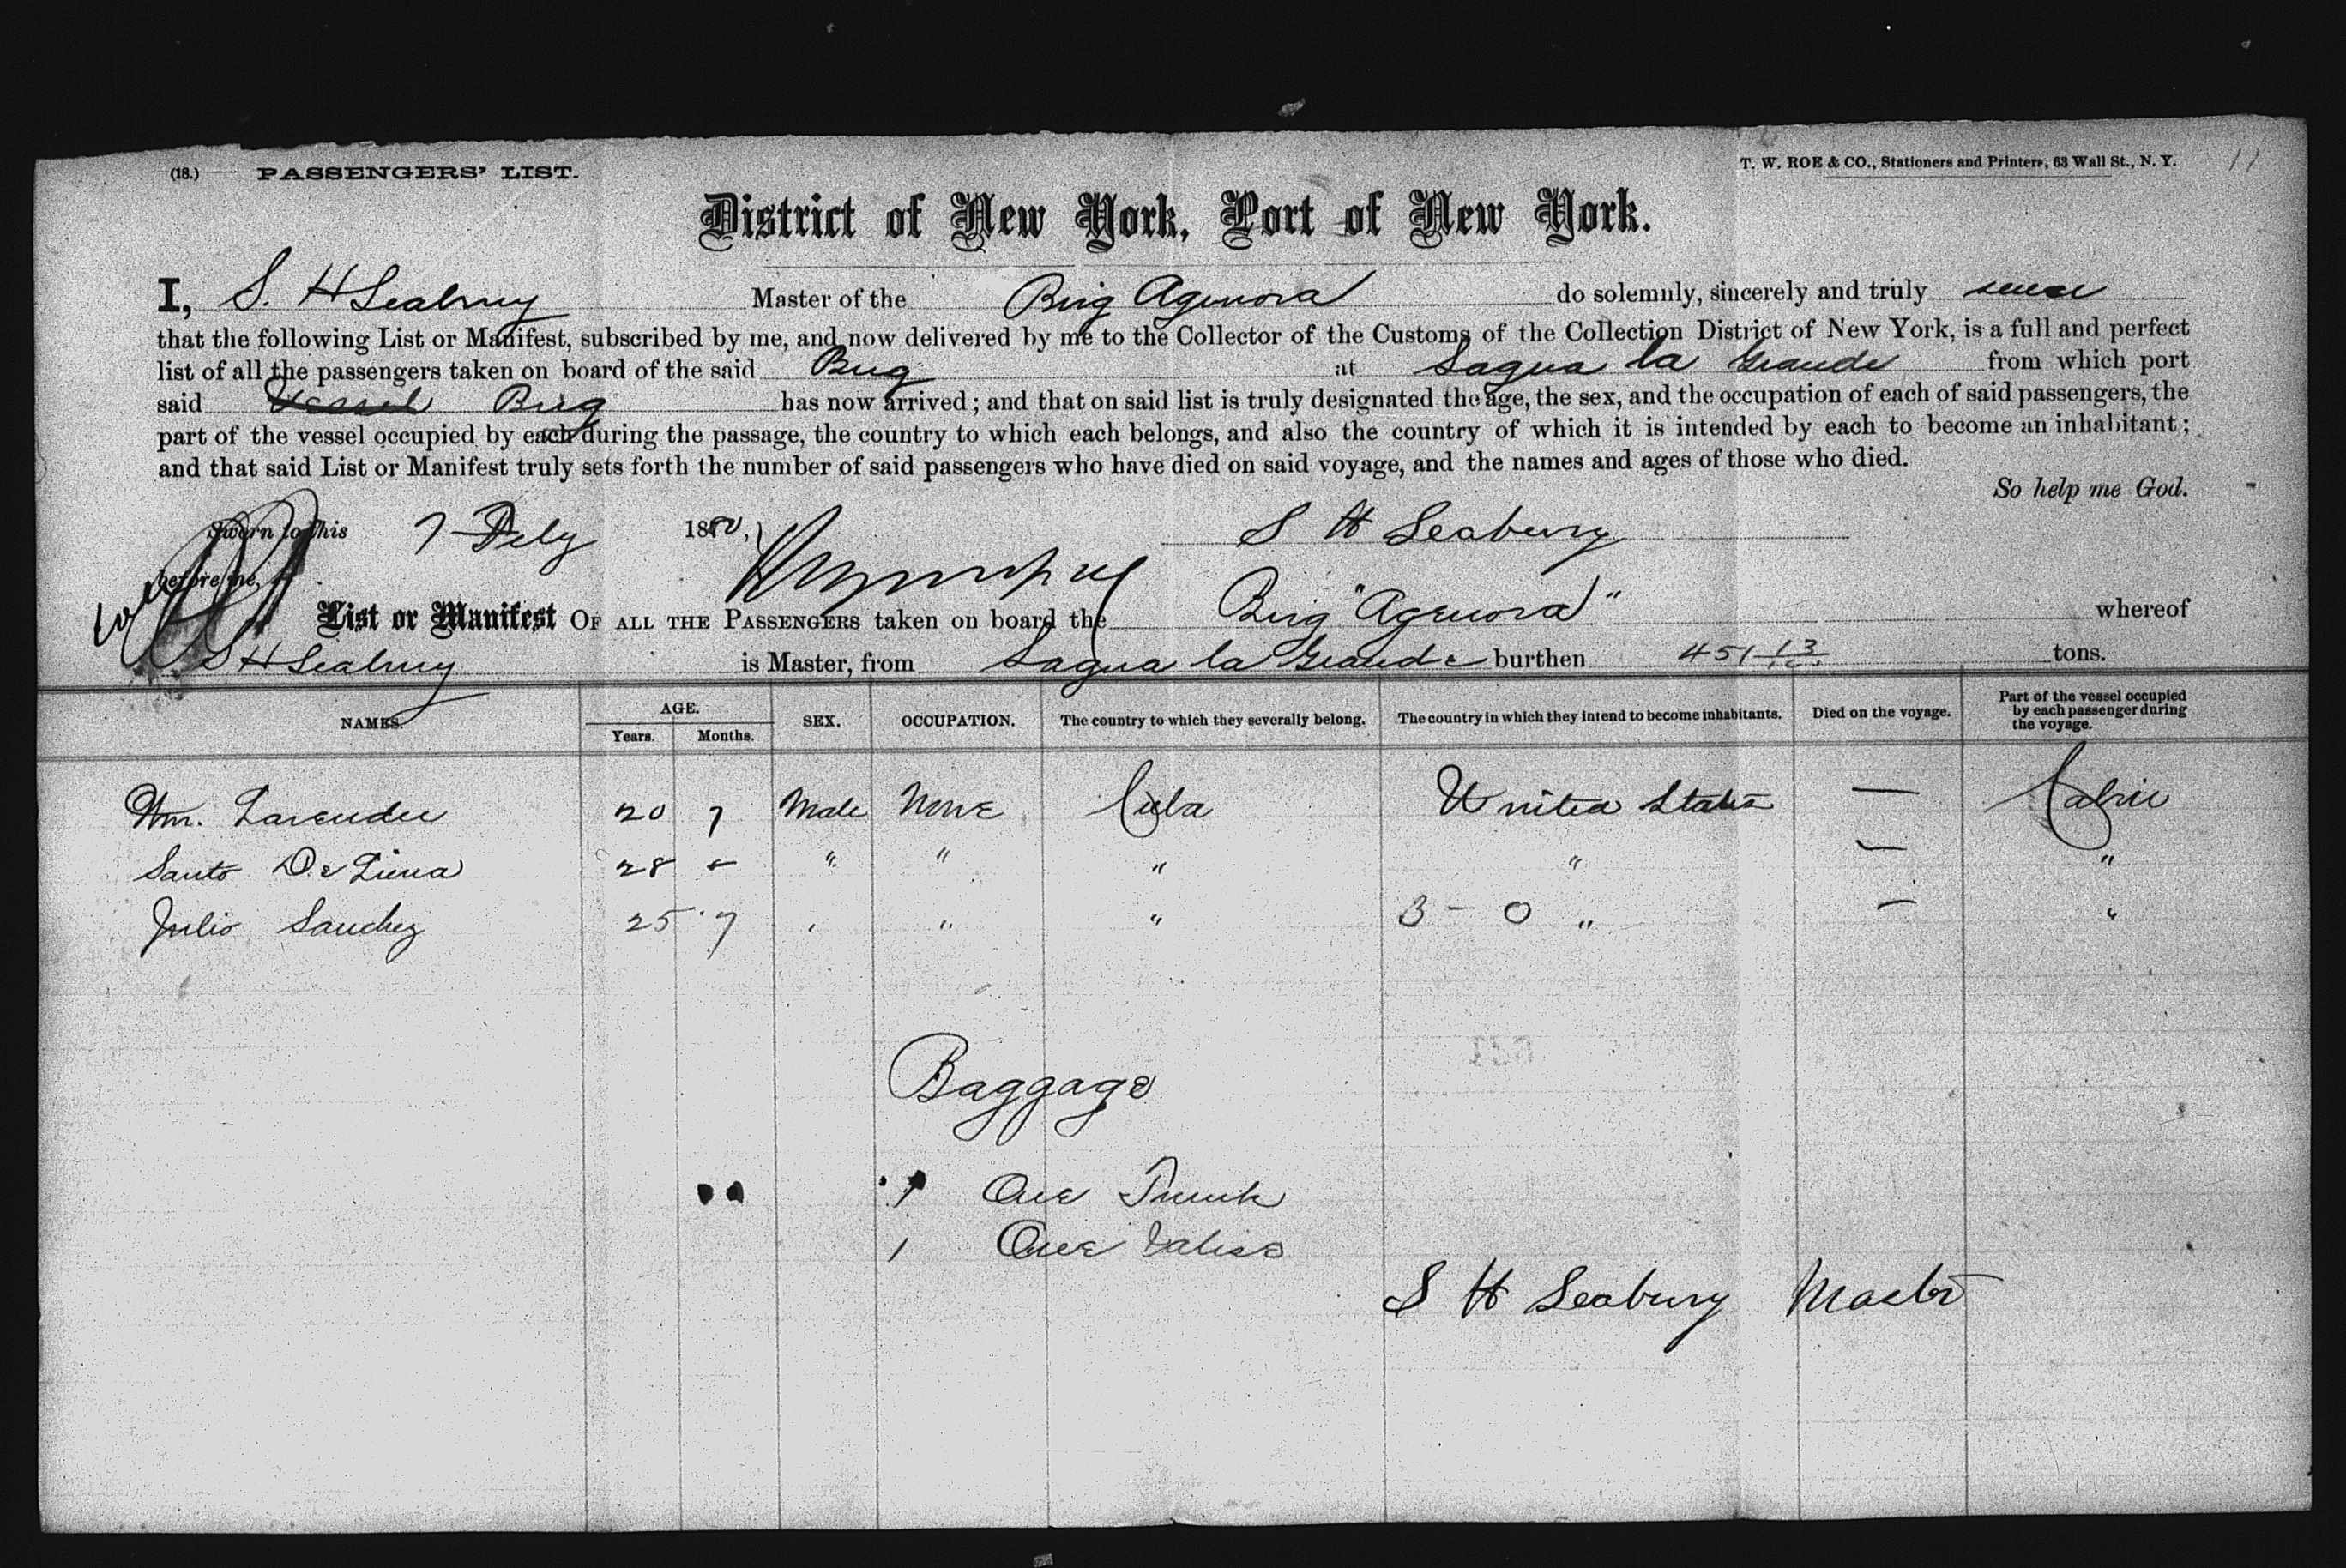 (18.) PASSENGERS' LIST.
T. W. ROE & CO., Stationers and Printers, 63 Wall St., N. Y.
District of New York, Port of New York.
I, S. H Seabury Master of the Brig Agenora do solemnly, sincerely and truly swear
that the following List or Manifest, subscribed by me, and now delivered by me to the Collector of the Customs of the Collection District of New York, is a full and perfect
list of all the passengers taken on board of the said Brig at Sagua la Grande from which port
said Vessel Brig has now arrived; and that on said list is truly designated the age, the sex, and the occupation of each of said passengers, the
part of the vessel occupied by each during the passage, the country to which each belongs, and also the country of which it is intended by each to become an inhabitant;
and that said List or Manifest truly sets forth the number of said passengers who have died on said voyage, and the names and ages of those who died.
So help me God.
Sworn to this 7 1880, S H Seabury
before me,
List or Manifest OF ALL THE PASSENGERS taken on board the Brig "Agenora" whereof
S H Seabury is Master, from Sagua la Grande burthen 451 tons.
NAMES. AGE. Years. Months. SEX. OCCUPATION. The country to which they severally belong. The country in which they intend to become inhabitants. Died on the voyage. Part of the vessel occupied by each passenger during the voyage.
Wm. Lavender 20 7 Male None Cuba United States — Cabin
Santo De Lima 28 - " " " " — "
Julio Sanchez 25 7 " " " 3 - 0 " — "
Baggage
1 One Trunk
1 One Valise
S H Seabury Master